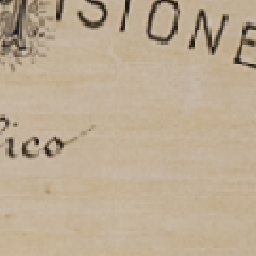 ISIONE
lico